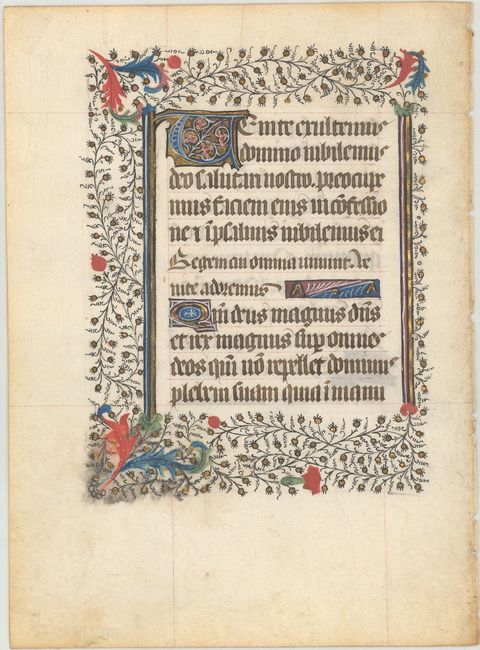 Uenite exultemus
domino iubilemus
deo salutari nostro. preocupe
mus faciem eius in cōfessio
ne ⁊ ī psalmis iubilemus ei
Regem cui omnia uiuunt. Ve
nite adoremus
Qm̄ deus magnus dn̄s
et rex magnus sup omnes
deos qm̄ nō repellet dominus
plebem suam quia ī manu